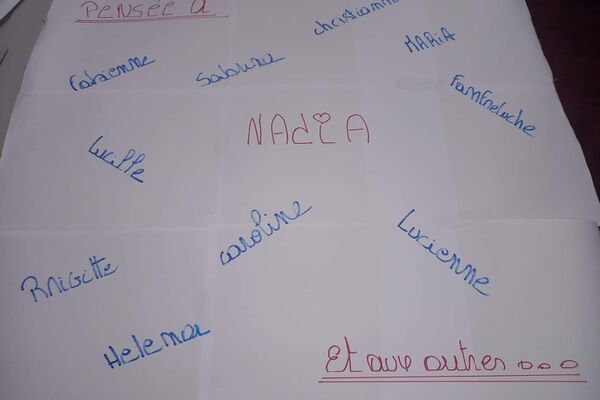 PENSÉE À
christiamne
MARIA
Fabienne
Sabrina
FamFreluche
NAdiA
Lucille
caroline
Lucienne
BRigitte
Helena
Et aux autres ...